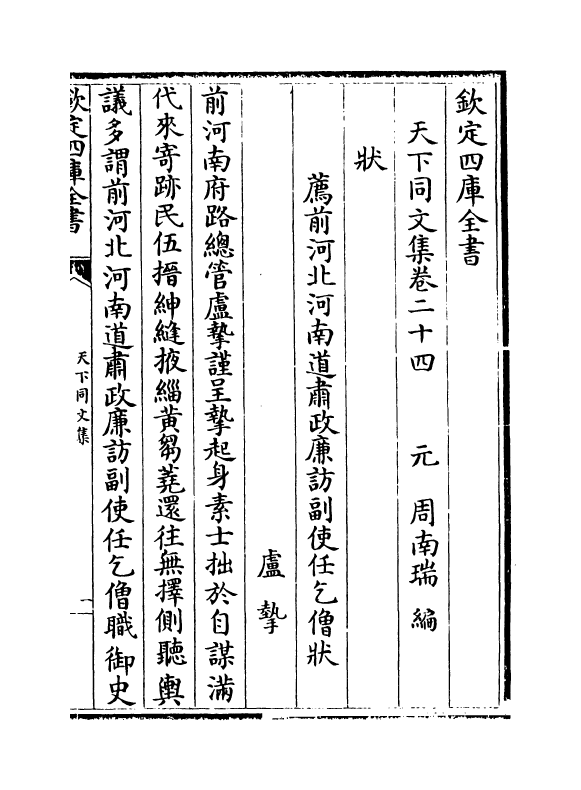 欽定四庫全書
天下同文集卷二十四 元 周南瑞 編
狀
薦前河北河南道肅政廉訪副使任乞僧狀
盧摯
前河南府路總管盧摯謹呈摯起身素士拙於自謀滿
代來寄跡民伍搢紳縫掖緇黄芻蕘還往無擇側聽輿
議多謂前河北河南道肅政廉訪副使任乞僧職御史
欽定四庫全書
天下同文集
一